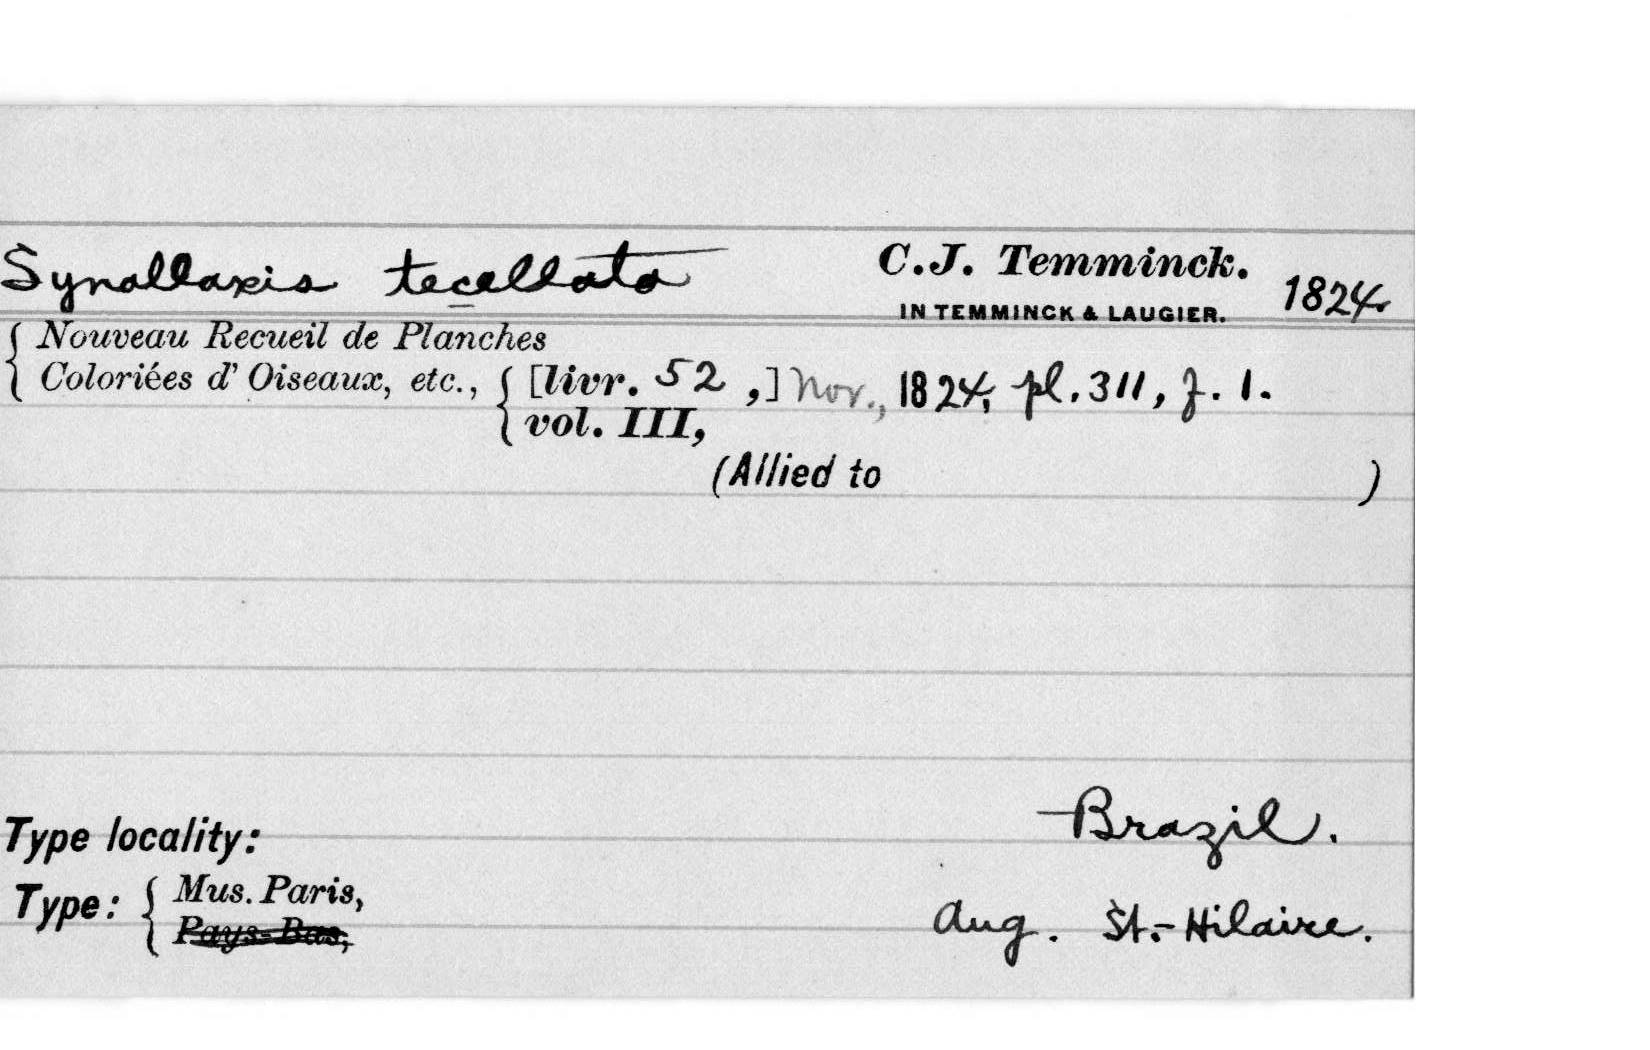 Synallaxis tecellata C.J. Temminck. 1824.
IN TEMMINCK & LAUGIER.
{ Nouveau Recueil de Planches
Coloriées d' Oiseaux, etc., { [livr. 52 ,] Nov., 1824, pl. 311, f. 1.
vol. III,
(Allied to )
Type locality: Brazil.
Type: { Mus. Paris, Aug. St.-Hilaire.
Pays-Bas,